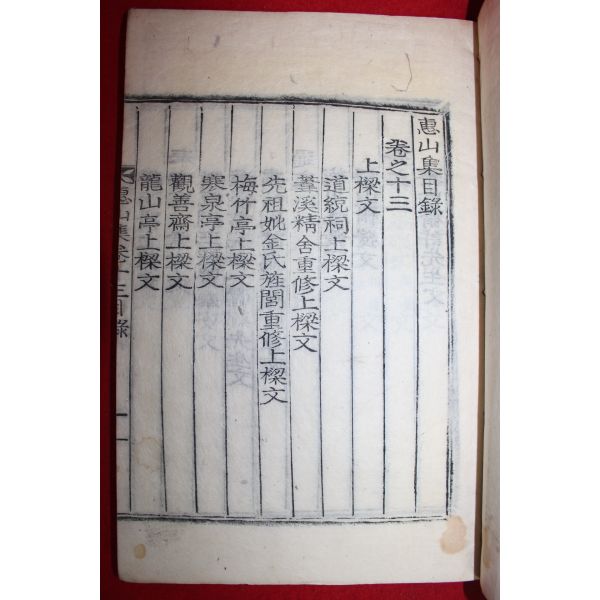 惠山集目錄
卷之十三
上樑文
道統祠上樑文
葦溪精舍重修上樑文
先祖妣金氏旌閭重修上樑文
梅竹亭上樑文
寒泉亭上樑文
觀善齋上樑文
龍山亭上樑文
惠山集卷十三目錄 一